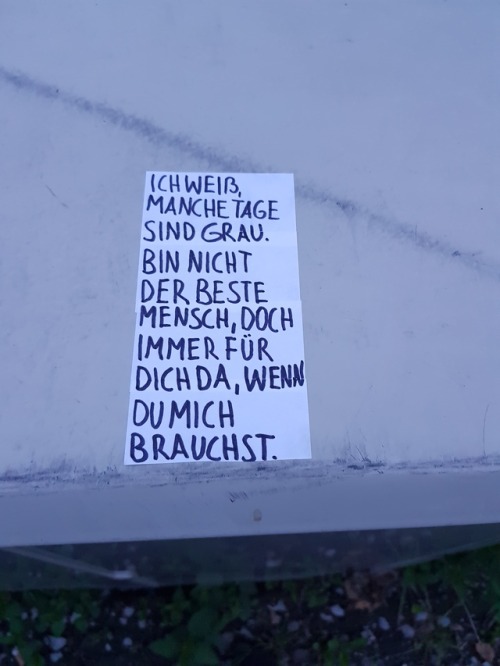 ICH WEIß,
MANCHE TAGE
SIND GRAU.
BIN NICHT
DER BESTE
MENSCH, DOCH
IMMER FÜR
DICH DA, WENN
DU MICH
BRAUCHST.